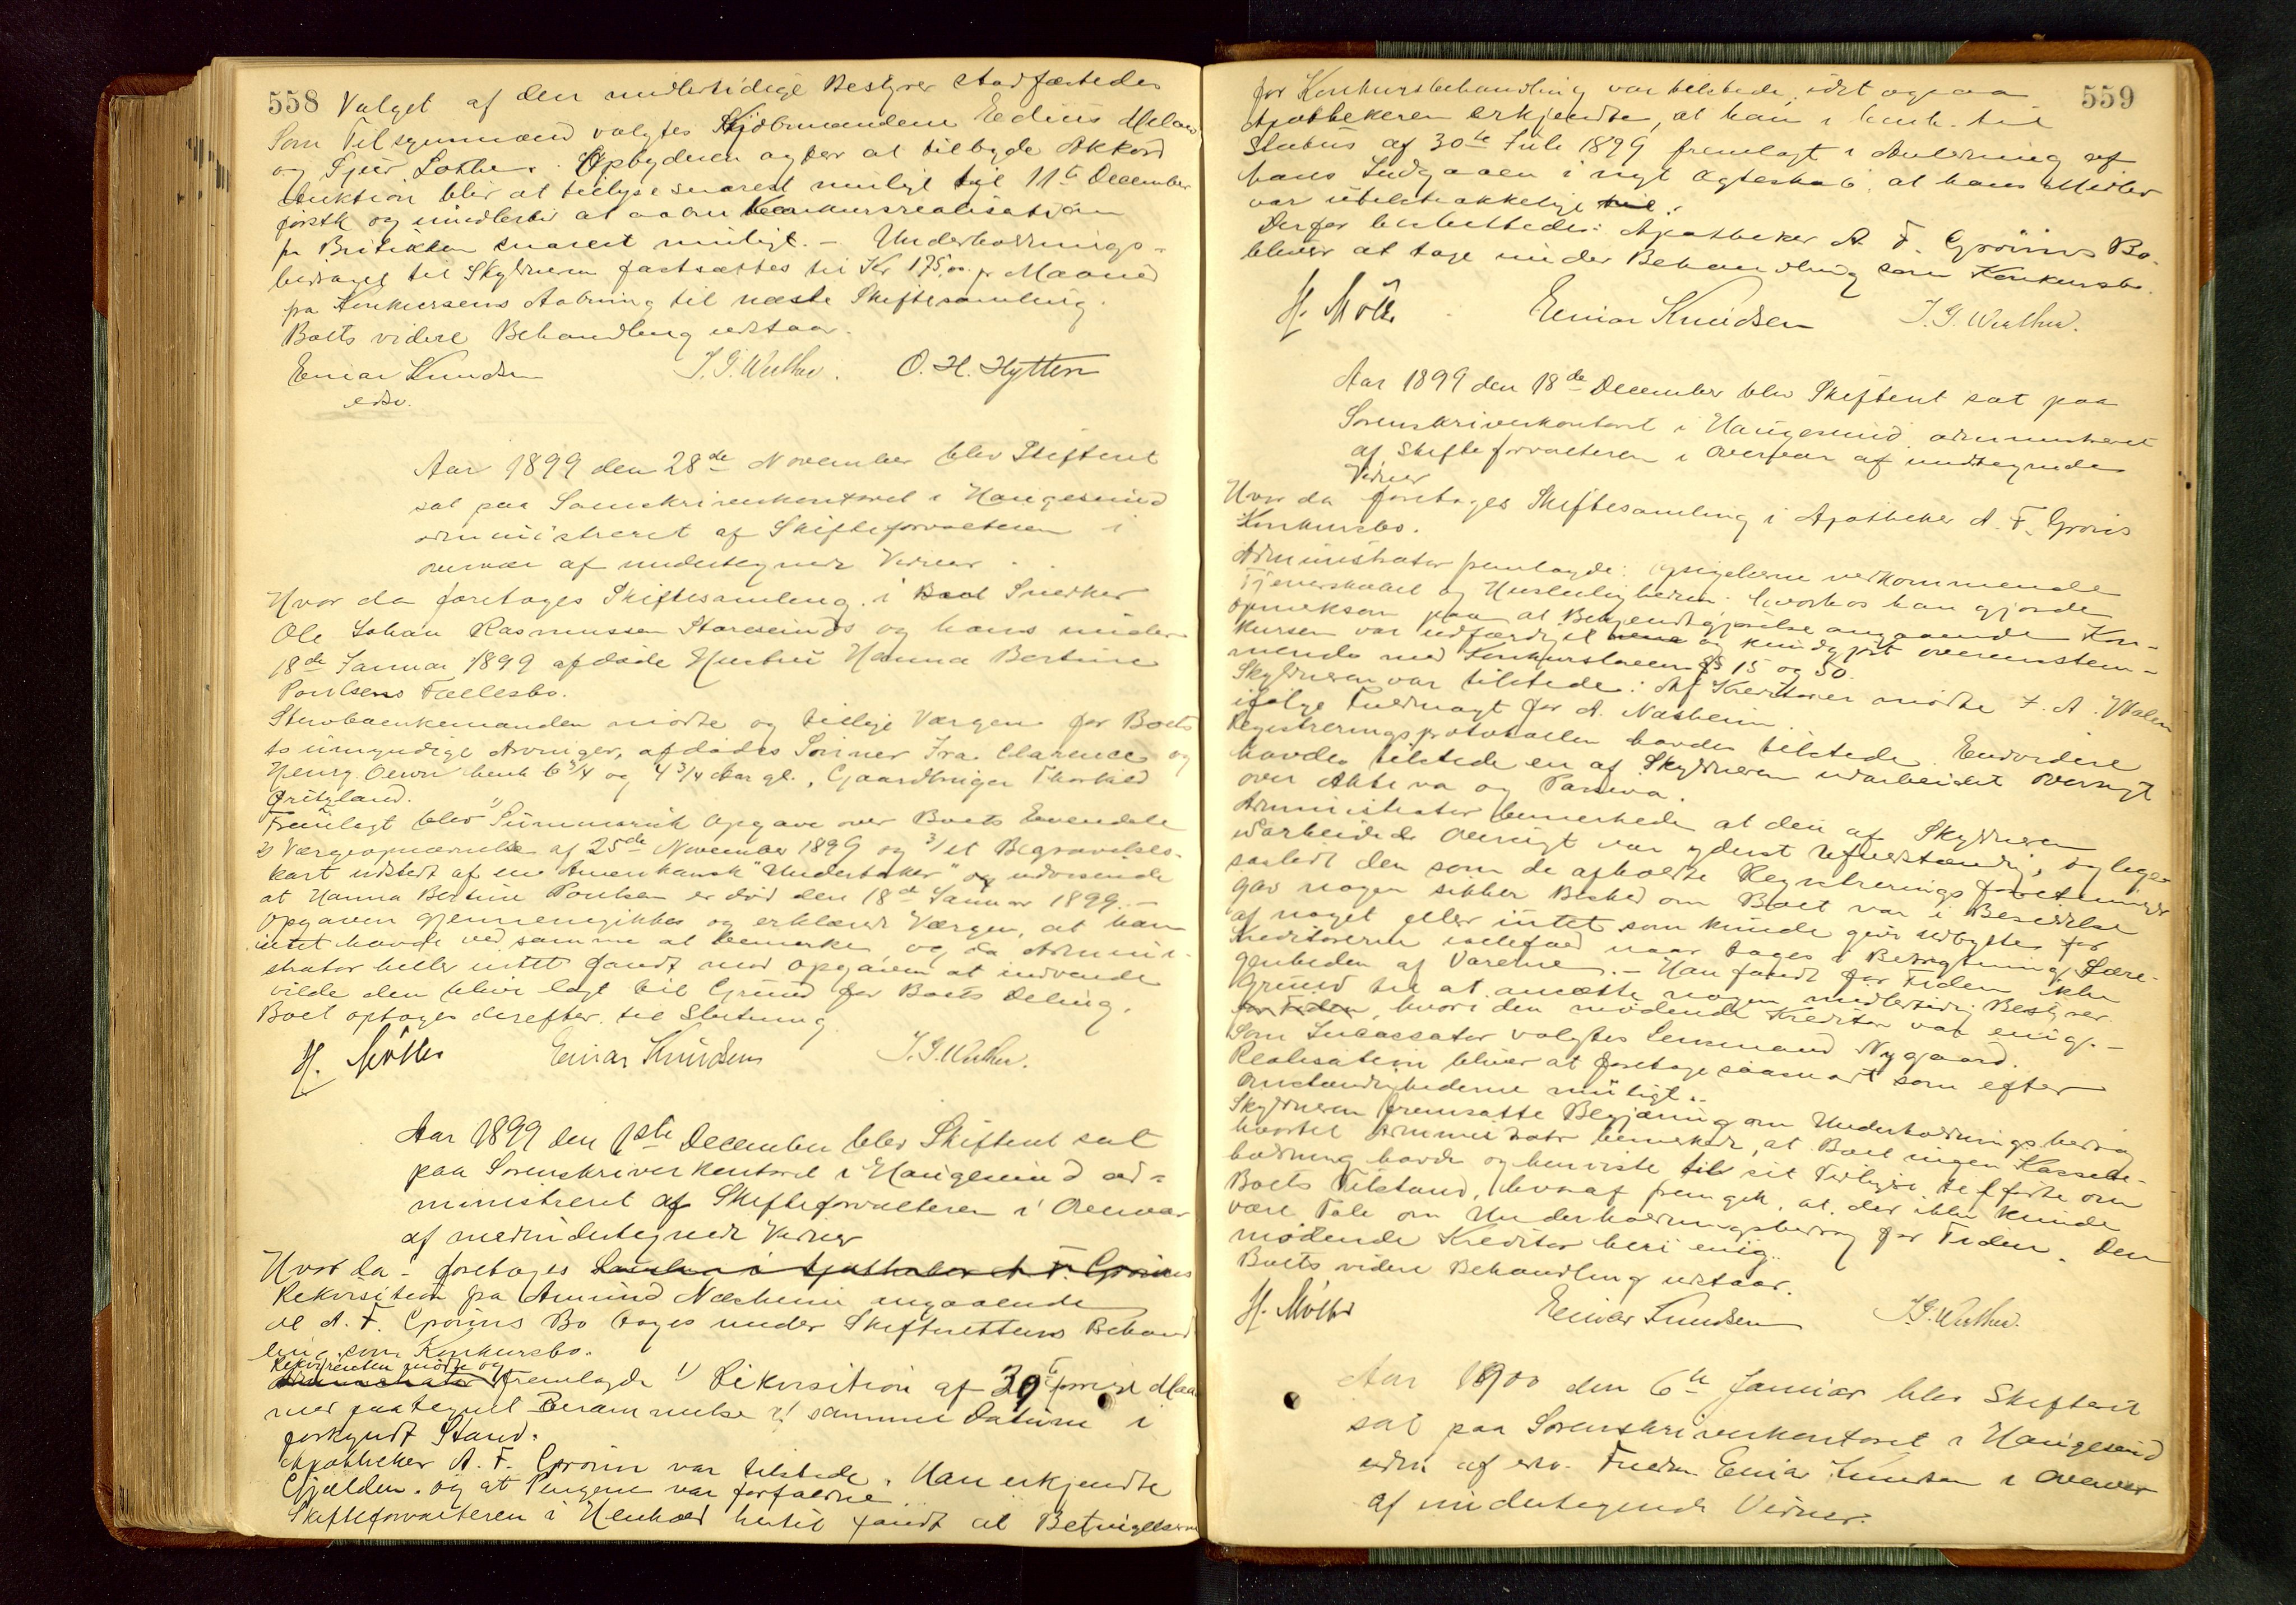 558 Valget af den midlertidige Bestyrer stadfæstedes
Som Tilsynsmænd valgtes Kjøbmændene Edius
og Sjur Lothe. Opbyderen agter at tilbyde Akkord
Auktion blev at tillyse snarest muligt till 11te December
førstk og imidlertid at aabne Konkursrealisation
fr Butikken snarest muligt. – Underholdnings-
bidraget til Skyldneren fastsættes til Kr 175,00 pr Maaned
fra Konkursens Aabning til næste Skiftesamling.
Boets videre Behandling udstaar.
Einar Knudsen J. G. Wulhu. O. H. Hytten
edsv.
Aar 1899 den 28de November blev Skifteret
sat paa Sorenskriverkontoret i Haugesund
administreret af Skifteforvalteren i
overvær af undertegnede Vidner.
Hvor da foretoges Skiftesamling i Snedker
Ole Johan Rasmussen Storesunds og hans under
18de Januar 1899 afdøde Hustru Hanna Bertine
Poulsens Fællesbo.
Stervboenkemanden mødte og tillige Værgen for Boets
to umyndige Arvinger, afdødes Sønner Ira Clarence og
Henry Oewn henh 6 3/4 og 4 3/4 Aar gl., Gaardbruger Thorkild
Fremlagt blev 1) Summarisk Opgave over Boets Eiendele
2) Værgeopnævnelse af 25de November 1899 og 3/ et Begravelses-
kort udstedt af en Amerikansk "Undertaker" og udvisende
at Hanna Bertine Poulsen er død den 18de Januar 1899. –
Opgaven gjennemgikkes og erklærede Værgen, at han
intet havde ved samme at bemerke, og da Admini-
strator heller intet fandt mod Opgaven at indvende
vilde den blive lagt til Grund for Boets Deling.
Boet optoges derefter til Slutning
H. Møller Einar Knudsen J. G. Wulhu.
Aar 1899 den 1ste December blev Skifteret sat
paa Sorenskriverkontoret i Haugesund ad-
ministreret af Skifteforvalteren i Overvær
af medundertegnede Vidner
Hvor da foretoges
Rekvisition fra Amund Næsheim angaaende
at A. F. Grøns Bo tages under Skifterettens Behand
ling som Konkursbo.
Rekvirenten mødte og
fremlagde 1) Rekvisition af 30te forrige Maa
ned paategnet Berammelse af samme Datum i
forkyndt Stand.
Apotheker A. F. Grøn var tilstede. Han erkjendte
Gjælden og at Pengene var forfaldne.
Skifteforvalteren i Henhold hertil fandt at Betingelserne
for Konkursbehandling var tilstede, idet ogsaa 559
Apothekeren erkjendte, at han i henh. til
Status af 30te Juli 1899 fremlagt i Anledning af
hans Indgaaen i nyt Ægteskab, at hans Midler
var utilstrækkelige.
Derfor besluttedes: Apotheker A. F. Grøns Bo
bliver at tage under Behandling som Konkursbo.
H. Møller Einar Knudsen J. G. Wulhu.
Aar 1899 den 18de December blev Skifteret sat paa
Sorenskriverkontoret i Haugesund, administreret
af Skifteforvalteren i Overvær af undtegnede
Vidner
Hvor da foretoges Skiftesamling i Apotheker A. F. Grøns
Konkursbo.
Administrator fremlagde: Opsigelserne vedkommende
Tjenerskabet og Husleiligheden hvorhos han gjorde
opmerksom paa at Bekjendtgjørelse angaaende Kon-
kursen var udfærdiget og kundgjort overensstem-
mende med Konkurslovens §§ 15 og 50.
Skyldneren var tilstede. Af Kreditorer mødte J. A. Walen
ifølge Fuldmagt for A. Næsheim.
Registreringsprotokollen havdes tilstede. Endvidere
havdes tilstede en af Skyldneren udarbeidet Oversigt
over Aktiva og Passiva.
Administrator bemerkede at den af Skyldneren
udarbeidede Oversigt var yderst ufuldstændig, og lige-
saalidt den som de afholdte Registreringsforretninger
gav nogen sikker Besked om Boet var i Besiddelse
af noget eller intet som kunde give udbytte for
Kreditorerne ialfald naar tages i Betragtning Være-
genheden af Varerne. – Han fandt for Tiden ikke
Grund til at ansætte nogen midlertidig Bestyrer
for Tiden, hvori den mødende Kreditor var enig. –
Som Incassator valgtes Lensmand Nygaard.
Realisation bliver at foretage saasnart som efter
Omstændighederne muligt.
Skyldneren fremsatte Begjæring om Underholdningsbidrag
hvortil Administrator bemerkede, at Boet ingen Kassebe-
holdning havde og henviste til sit Tidligere tilførte om
Boets Tilstand, hvoraf fremgik, at der ikke kunde
være Tale om Underholdningsbidrag for Tiden. Den
mødende Kreditor heri enig.
Boets videre Behandling udstaar.
H. Møller Einar Knudsen J. G. Wulhu.
Aar 1900 den 6te Januar blev Skifteret
sat paa Sorenskriverkontoret i Haugesund
adm. af edsv. Fuldm. Einar Knudsen i Overvær
af undertegnede Vidner.